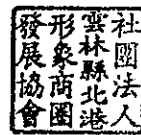 社團法人
雲林縣北港
形象商圈
發展協會